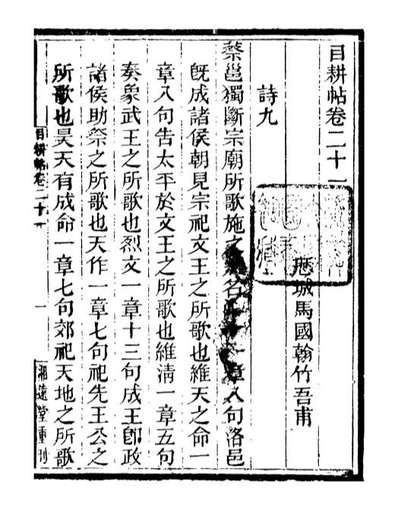 目耕帖卷二十一
歷城馬國翰竹吾甫
詩九
蔡邕獨斷宗廟所歌施之 名 一章八句洛邑
旣成諸侯朝見宗祀文王之所歌也維天之命一
章八句告太平於文王之所歌也維淸一章五句
奏象武王之所歌也烈文一章十三句成王卽政
諸侯助祭之所歌也天作一章七句祀先王公之
所歌也昊天有成命一章七句郊祀天地之所歌
目耕帖卷二十一
一
湘遠堂重刊